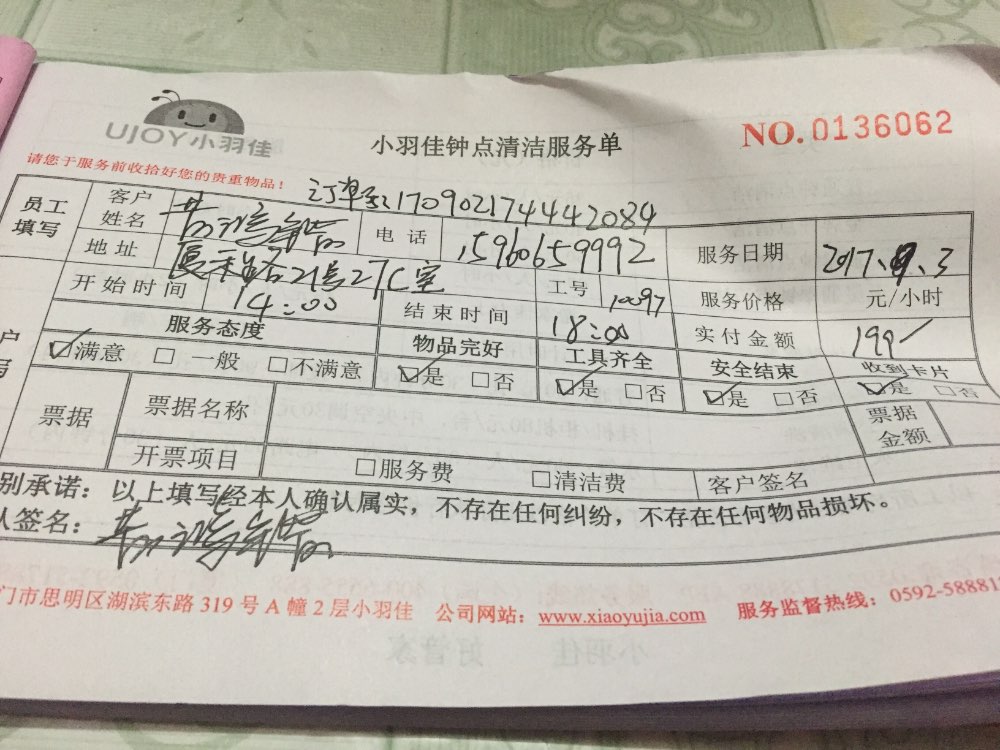 UJOY小羽佳
小羽佳钟点清洁服务单
NO.0136062
请您于服务前收拾好您的贵重物品！
订单号:170902174442084
员工填写 客户姓名 电话 15960659992 服务日期 2017、9、3
地址 21号27C室 工号 10097 服务价格 元/小时
开始时间 14:00 结束时间 18:00 实付金额 199
服务态度 物品完好 工具齐全 安全结束 收到卡片
☑满意 □一般 □不满意 ☑是 □否 ☑是 □否 ☑是 □否 ☑是 □否
票据 票据名称 票据金额
开票项目 □服务费 □清洁费 客户签名
别承诺：以上填写经本人确认属实，不存在任何纠纷，不存在任何物品损坏。
人签名：
门市思明区湖滨东路 319 号 A 幢 2 层小羽佳 公司网站：www.xiaoyujia.com 服务监督热线：0592-58881